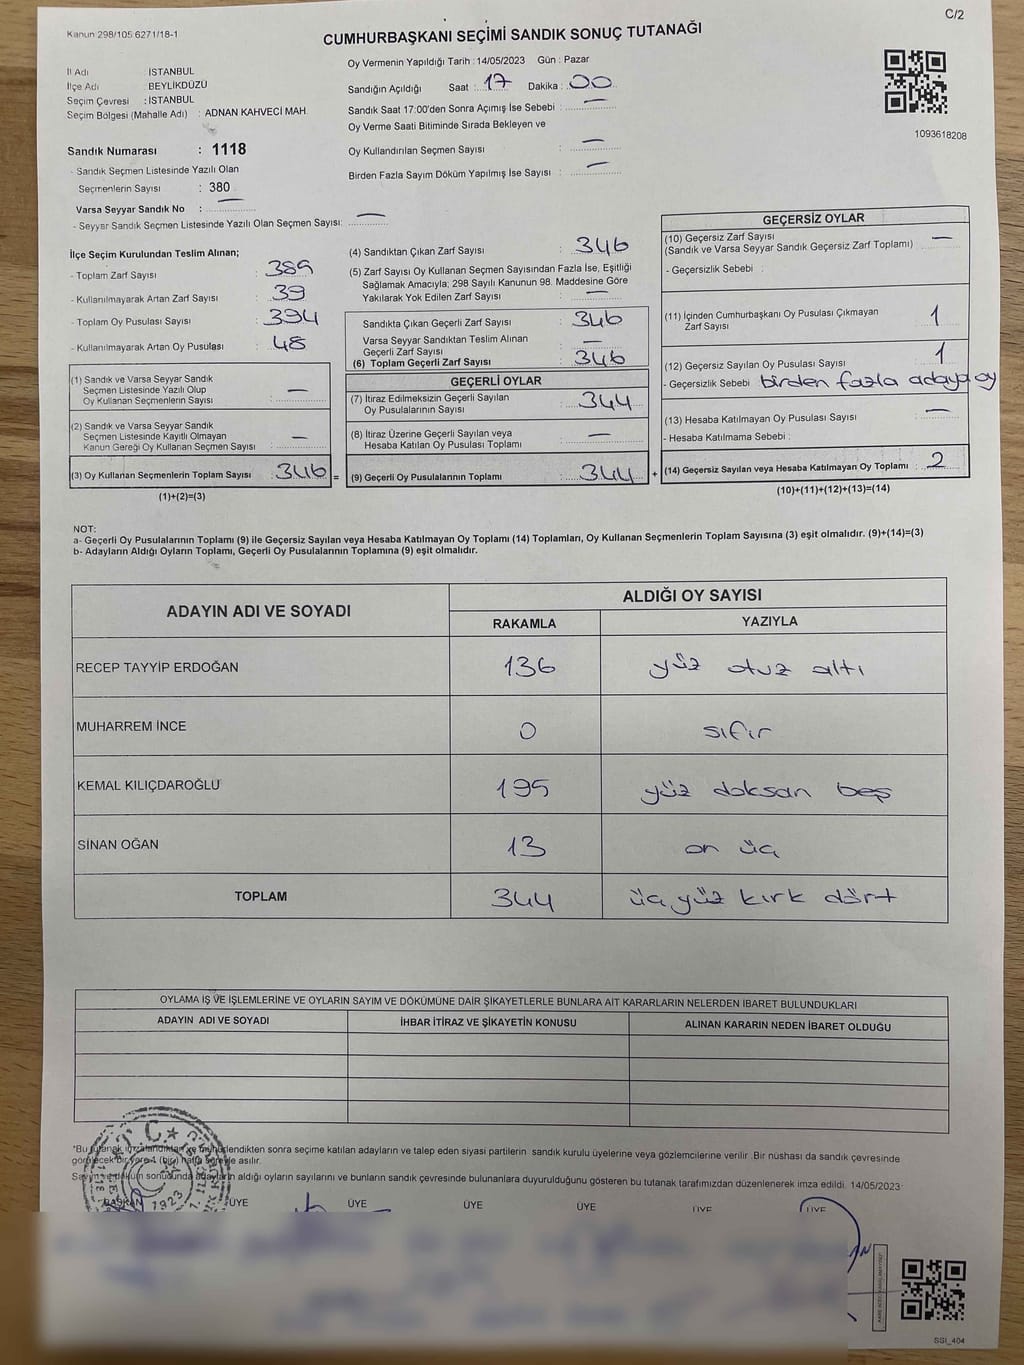 C/2
Kanun 298/105 6271/18-1
CUMHURBAŞKANI SEÇİMİ SANDIK SONUÇ TUTANAĞI
İl Adı : İSTANBUL
İlçe Adı : BEYLİKDÜZÜ
Seçim Çevresi : İSTANBUL
Seçim Bölgesi (Mahalle Adı) : ADNAN KAHVECİ MAH.
Sandık Numarası : 1118
- Sandık Seçmen Listesinde Yazılı Olan
Seçmenlerin Sayısı : 380
Varsa Seyyar Sandık No : —
- Seyyar Sandık Seçmen Listesinde Yazılı Olan Seçmen Sayısı: —
Oy Vermenin Yapıldığı Tarih : 14/05/2023 Gün : Pazar
Sandığın Açıldığı Saat : 17 Dakika : 00
Sandık Saat 17:00'den Sonra Açımış İse Sebebi : —
Oy Verme Saati Bitiminde Sırada Bekleyen ve
Oy Kullandırılan Seçmen Sayısı : —
Birden Fazla Sayım Döküm Yapılmış İse Sayısı : —
1093618208
İlçe Seçim Kurulundan Teslim Alınan;
- Toplam Zarf Sayısı : 385
- Kullanılmayarak Artan Zarf Sayısı : 39
- Toplam Oy Pusulası Sayısı : 394
- Kullanılmayarak Artan Oy Pusulası : 48
(1) Sandık ve Varsa Seyyar Sandık
Seçmen Listesinde Yazılı Olup
Oy Kullanan Seçmenlerin Sayısı : —
(2) Sandık ve Varsa Seyyar Sandık
Seçmen Listesinde Kayıtlı Olmayan
Kanun Gereği Oy Kullanan Seçmen Sayısı : —
(3) Oy Kullanan Seçmenlerin Toplam Sayısı : 346 =
(1)+(2)=(3)
(4) Sandıktan Çıkan Zarf Sayısı : 346
(5) Zarf Sayısı Oy Kullanan Seçmen Sayısından Fazla İse, Eşitliği
Sağlamak Amacıyla; 298 Sayılı Kanunun 98. Maddesine Göre
Yakılarak Yok Edilen Zarf Sayısı : —
Sandıkta Çıkan Geçerli Zarf Sayısı : 346
Varsa Seyyar Sandıktan Teslim Alınan
Geçerli Zarf Sayısı : —
(6) Toplam Geçerli Zarf Sayısı : 346
GEÇERLİ OYLAR
(7) İtiraz Edilmeksizin Geçerli Sayılan
Oy Pusulalarının Sayısı : 344
(8) İtiraz Üzerine Geçerli Sayılan veya
Hesaba Katılan Oy Pusulası Toplamı : —
(9) Geçerli Oy Pusulalarının Toplamı : 344 +
GEÇERSİZ OYLAR
(10) Geçersiz Zarf Sayısı : —
(Sandık ve Varsa Seyyar Sandık Geçersiz Zarf Toplamı)
- Geçersizlik Sebebi :
(11) İçinden Cumhurbaşkanı Oy Pusulası Çıkmayan
Zarf Sayısı : 1
(12) Geçersiz Sayılan Oy Pusulası Sayısı : 1
- Geçersizlik Sebebi : birden fazla adaya oy
(13) Hesaba Katılmayan Oy Pusulası Sayısı : —
- Hesaba Katılmama Sebebi :
(14) Geçersiz Sayılan veya Hesaba Katılmayan Oy Toplamı : 2
(10)+(11)+(12)+(13)=(14)
NOT:
a- Geçerli Oy Pusulalarının Toplamı (9) ile Geçersiz Sayılan veya Hesaba Katılmayan Oy Toplamı (14) Toplamları, Oy Kullanan Seçmenlerin Toplam Sayısına (3) eşit olmalıdır. (9)+(14)=(3)
b- Adayların Aldığı Oyların Toplamı, Geçerli Oy Pusulalarının Toplamına (9) eşit olmalıdır.
ADAYIN ADI VE SOYADI ALDIĞI OY SAYISI
RAKAMLA YAZIYLA
RECEP TAYYİP ERDOĞAN 136 yüz otuz altı
MUHARREM İNCE 0 sıfır
KEMAL KILIÇDAROĞLU 195 yüz doksan beş
SİNAN OĞAN 13 on üç
TOPLAM 344 üç yüz kırk dört
OYLAMA İŞ VE İŞLEMLERİNE VE OYLARIN SAYIM VE DÖKÜMÜNE DAİR ŞİKAYETLERLE BUNLARA AİT KARARLARIN NELERDEN İBARET BULUNDUKLARI
ADAYIN ADI VE SOYADI İHBAR İTİRAZ VE ŞİKAYETİN KONUSU ALINAN KARARIN NEDEN İBARET OLDUĞU
*Bu tutanak imzalandıktan ve mühürlendikten sonra seçime katılan adayların ve talep eden siyasi partilerin sandık kurulu üyelerine veya gözlemcilerine verilir .Bir nüshası da sandık çevresinde
görülecek bir yere 1 (bir) hafta süreyle asılır.
Sayım ve döküm sonucunda adayların aldığı oyların sayılarını ve bunların sandık çevresinde bulunanlara duyurulduğunu gösteren bu tutanak tarafımızdan düzenlenerek imza edildi. 14/05/2023
BAŞKAN ÜYE ÜYE ÜYE ÜYE ÜYE ÜYE
T.C.
1923
SSI_404